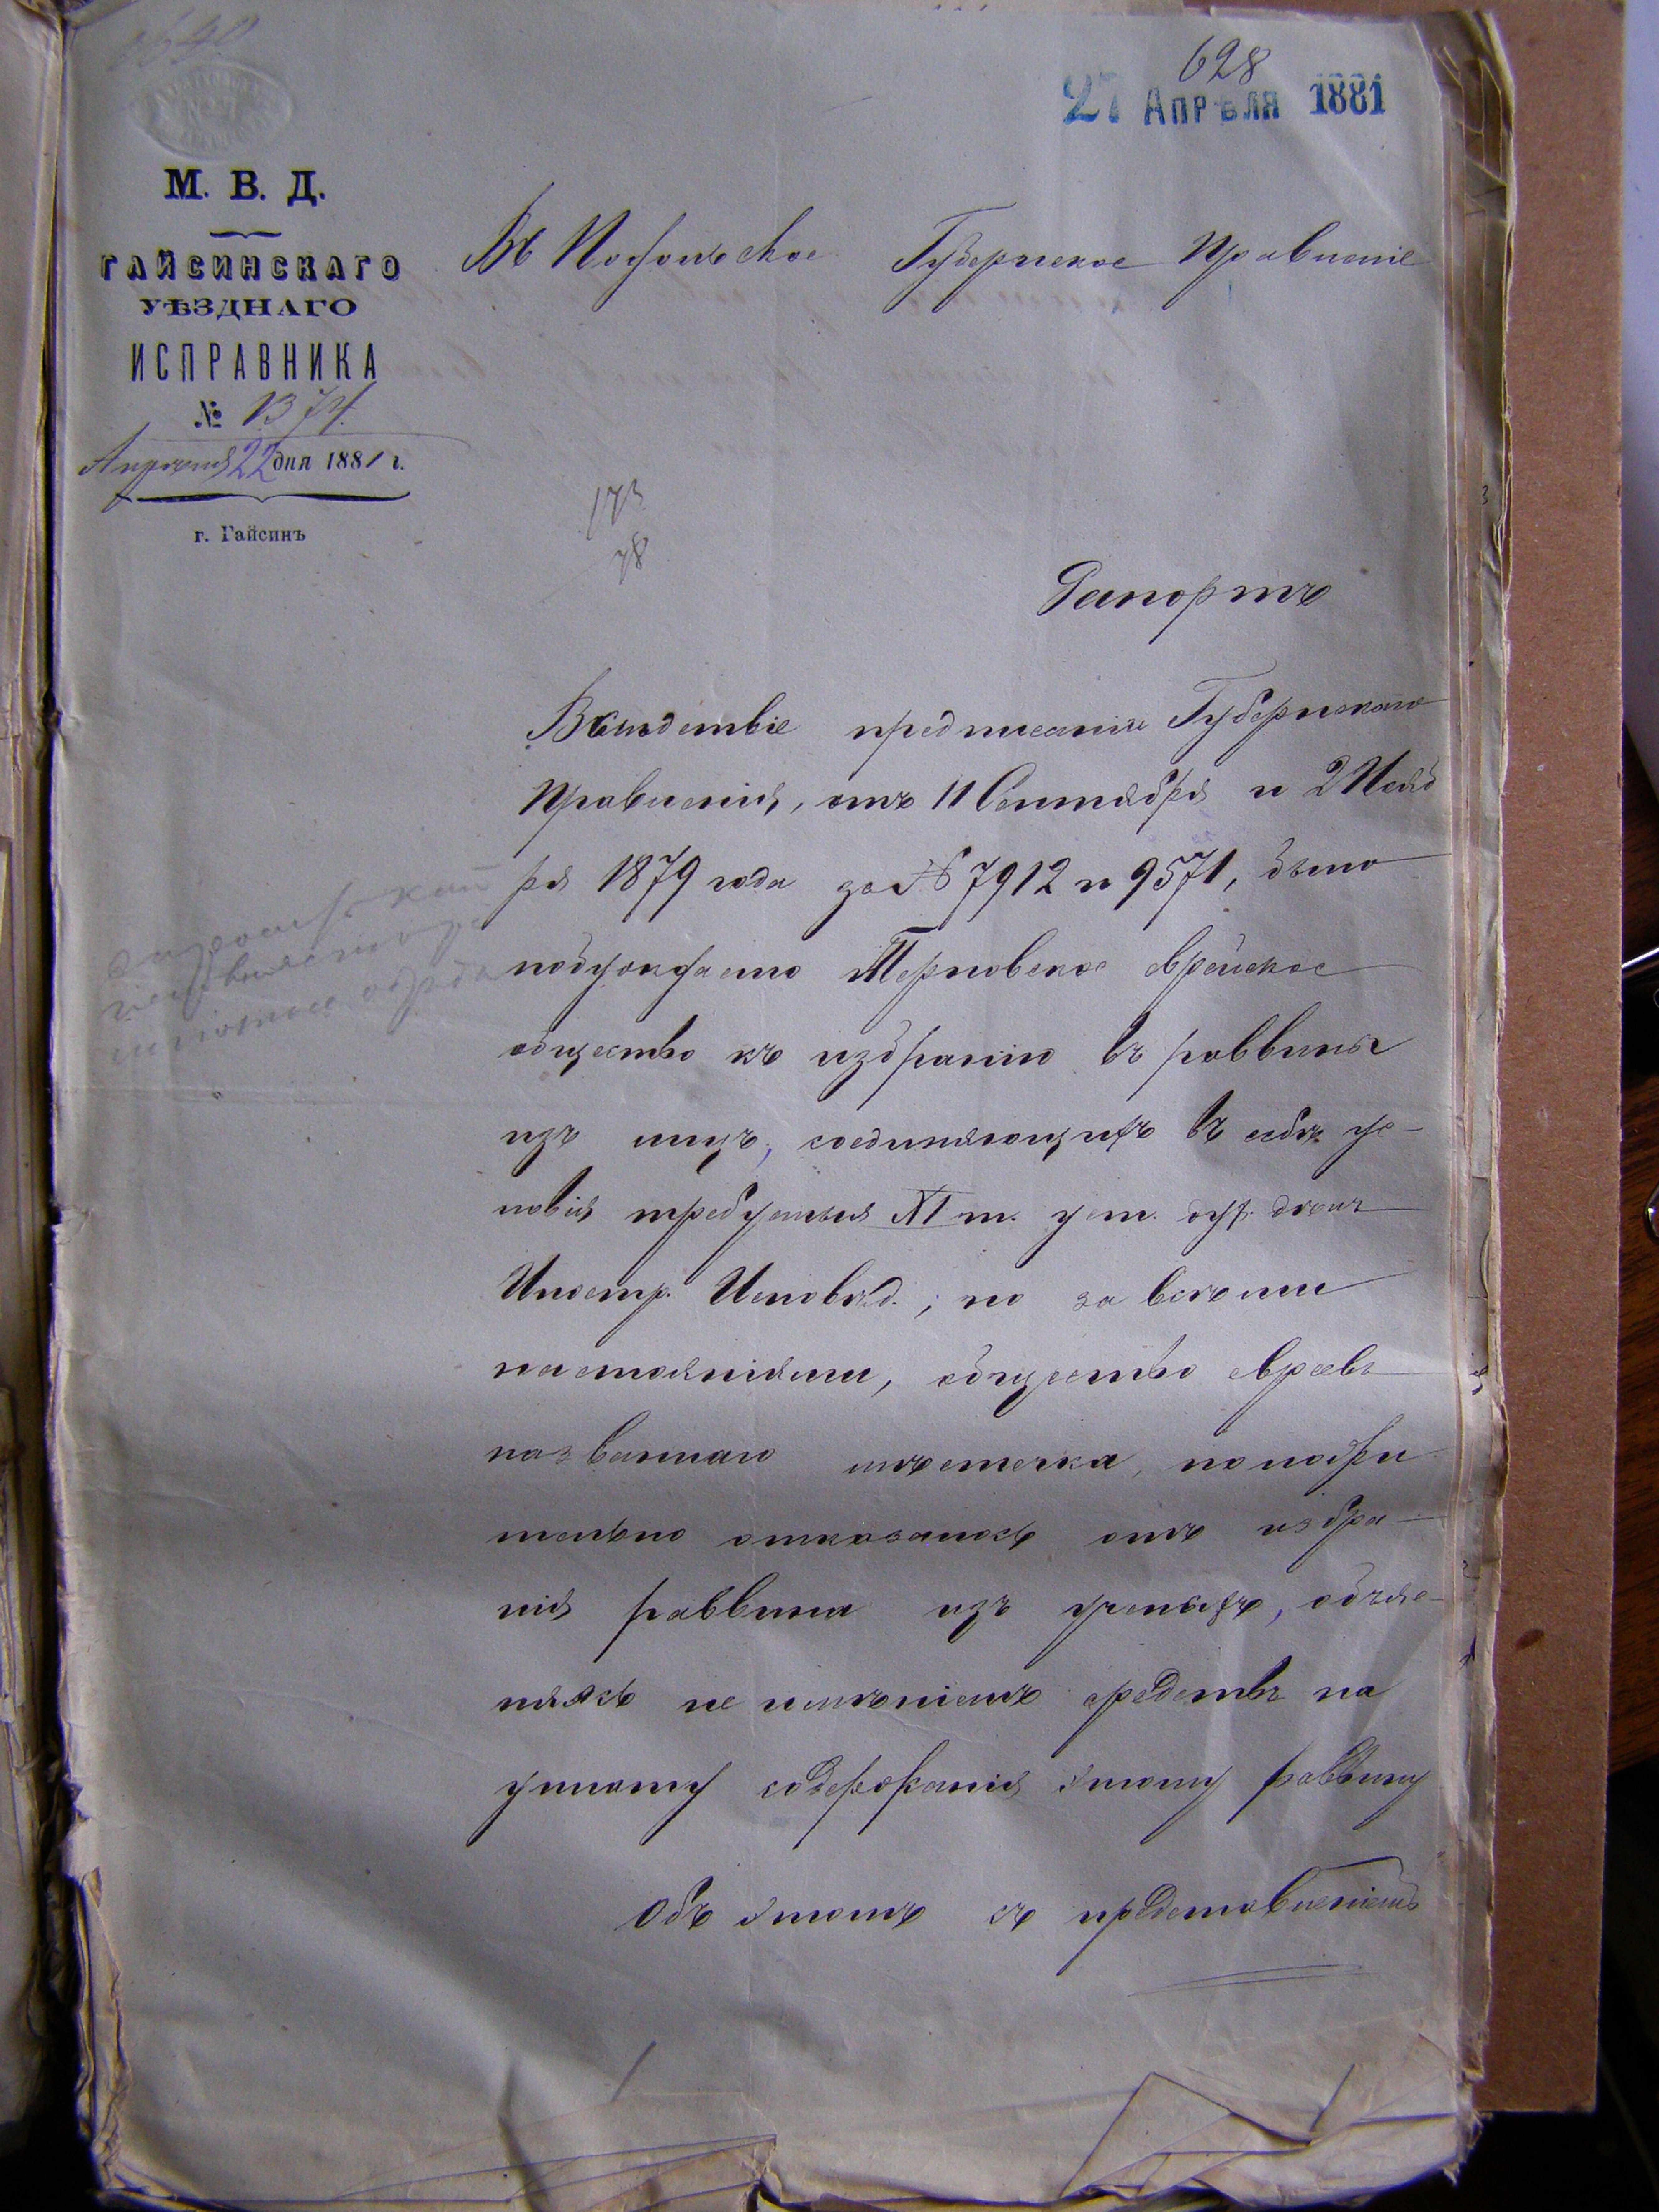 628
27 АПРѢЛЯ 1881
М. В. Д.
ГАЙСИНСКАГО
УѢЗДНАГО
ИСПРАВНИКА
№ 1374.
Апрѣля 22 дня 1881 г.
г. Гайсинъ
Въ Подольское Губернское Правленіе
173
78
Рапортъ
Вслѣдствіе предписанія Губернскаго
Правленія, отъ 11 Сентября и 2 Нояб
ря 1879 года за № 7912 и 9571, было
побуждаемо Терновское еврейское
общество къ избранію въ раввины
изъ лицъ, соединяющихъ въ себѣ ус-
ловія требуемыя XI т. уст. дух. дѣлъ
Иностр. Исповѣд., но за всѣми
настояніями, общество евреевъ
названнаго мѣстечка, положи
тельно отказалось отъ избра-
нія раввина изъ ученыхъ, объяс-
няясь не имѣніемъ средствъ на
уплату содержанія этому раввину
Объ этомъ съ представленіемъ